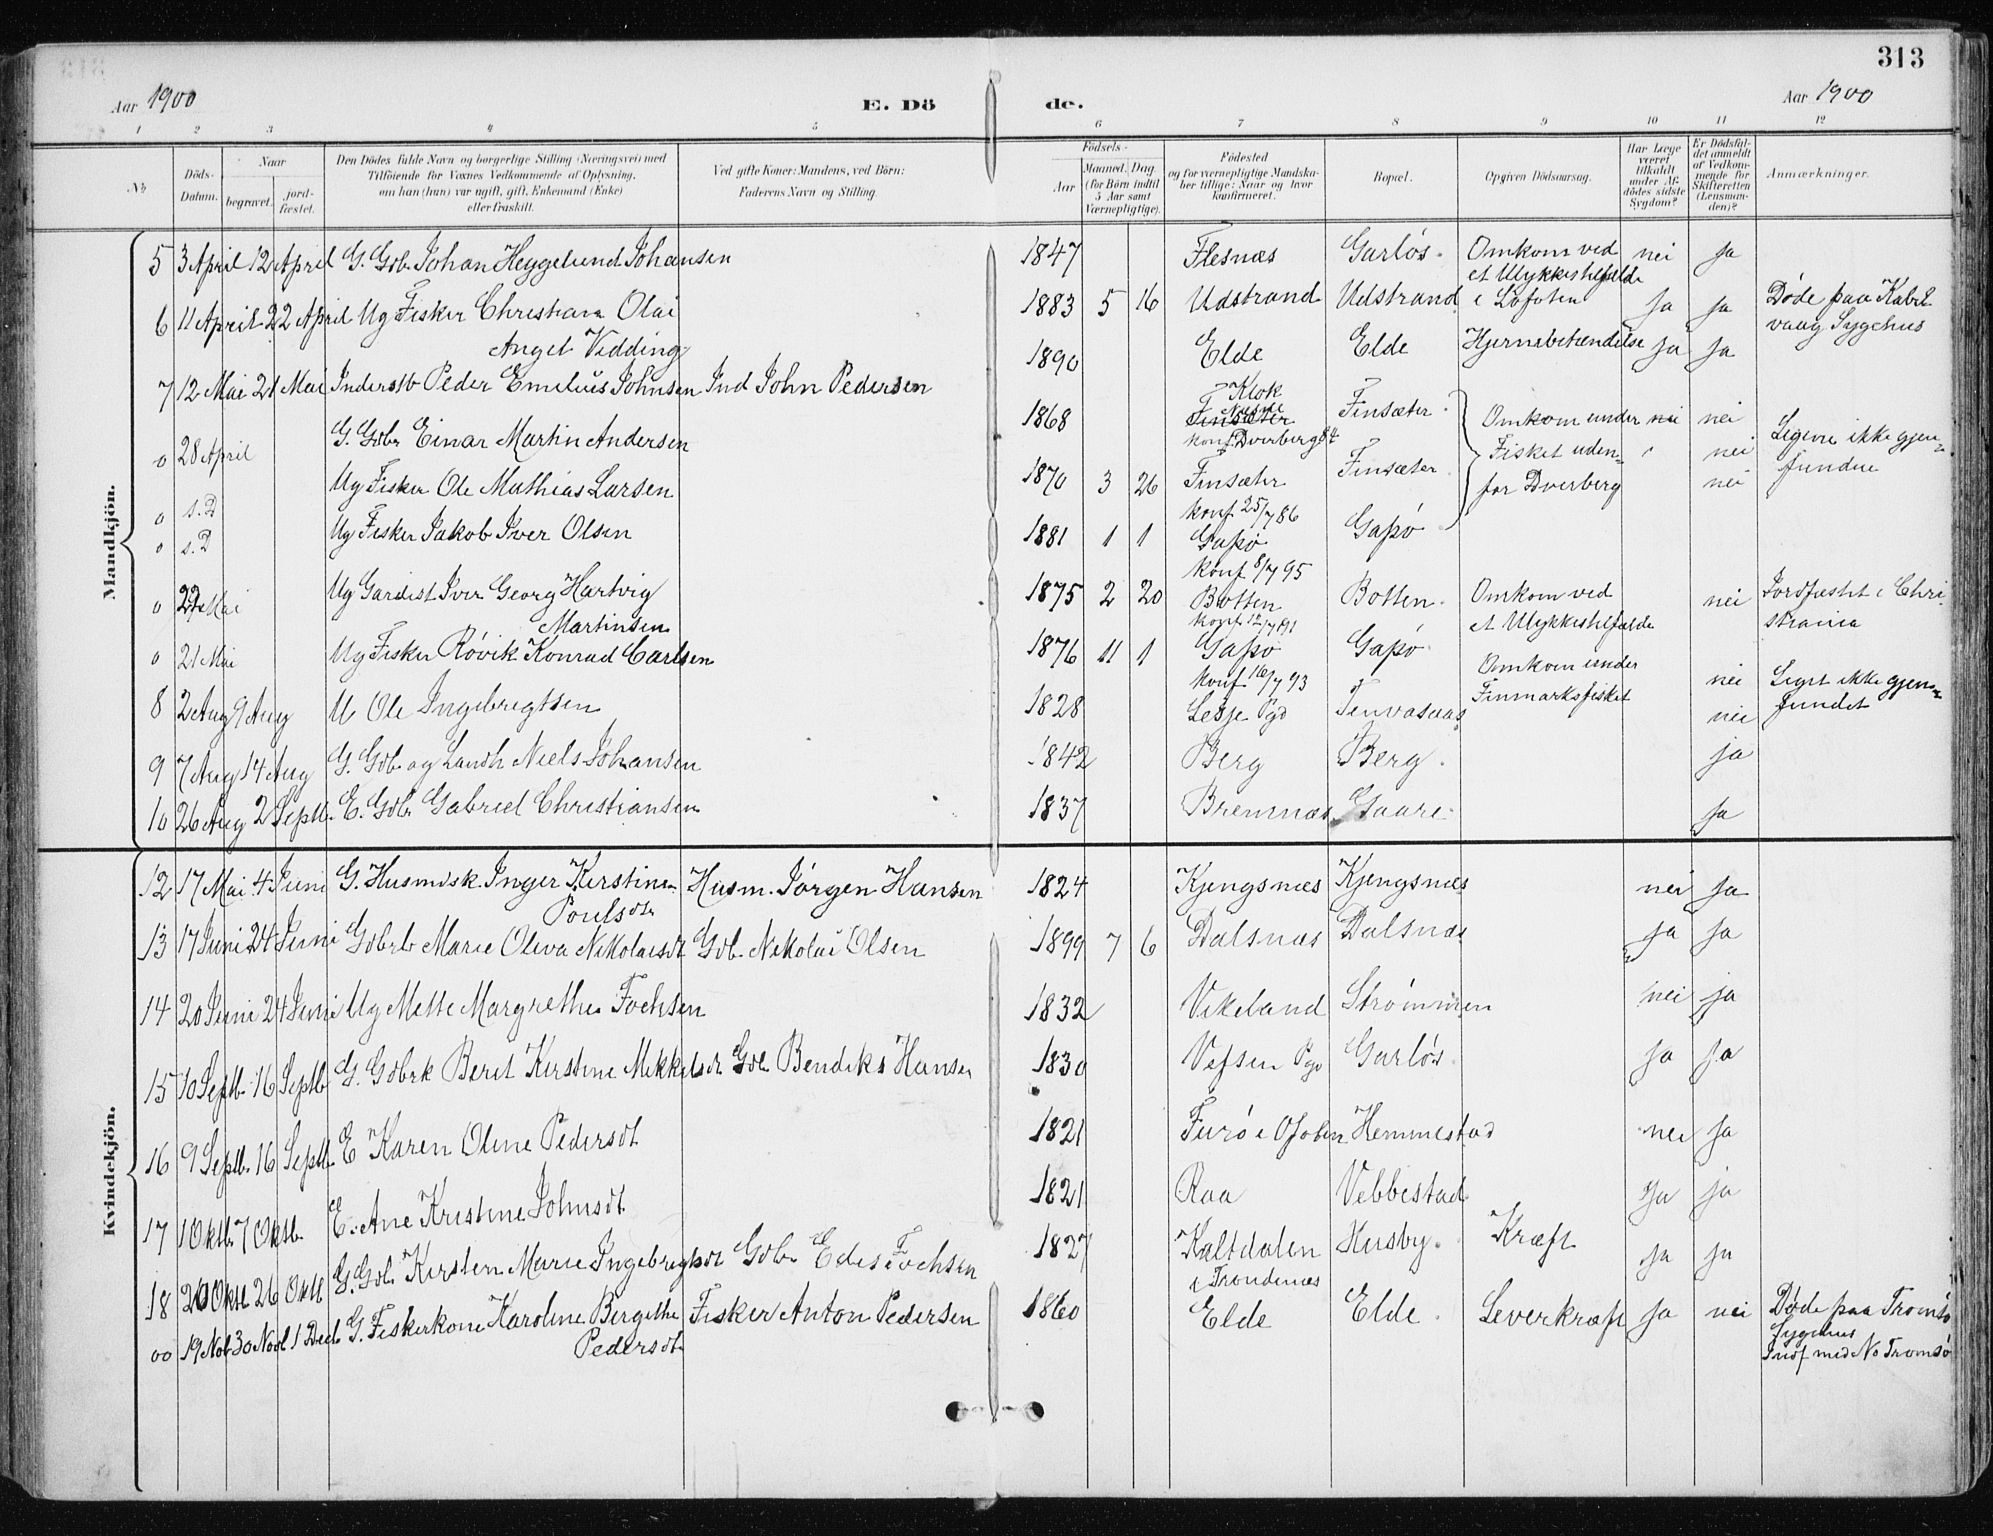 313
Aar 1900 E. Dö de. Aar 1900
1 2 3 4 5 6 7 8 9 10 11 12
No Döds-Datum. Naar begravet. jord-fæstet. Den Dödes fulde Navn og borgerlige Stilling (Næringsvei) med Tilföiende for Voxnes Vedkommende af Oplysning, om han (hun) var ugift, gift, Enkemand (Enke) eller fraskilt. Ved gifte Koner: Mandens, ved Börn: Faderens Navn og Stilling. Födsels- Aar Maaned. Dag. (for Börn indtil 5 Aar samt Værnepligtige). Födested og for værnepligtige Mandskaber tillige: Naar og hvor konfirmeret. Bopæl. Opgiven Dödsaarsag. Har Læge været tilkaldt under Afdödes sidste Sygdom? Er Dödsfaldet anmeldt af Vedkommende for Skifteretten (Lensmanden)? Anmærkninger.
Mandkjön.
5 3 April 12 April G. Gbr. Johan Heggelund Johansen 1847 Flesnæs Garløs. Omkom ved et Ulykkestilfælde i Lofoten nei ja
6 11 April 22 April Ug Fisker Christian Olai Angel Vedding 1883 5 16 Udstrand Udstrand ja ja Døde paa Kabelvaag Sygehus
7 12 Mai 21 Mai Inderstb Peder Emelius Johnsen Ind John Pedersen 1890 Elde Elde Hjernebetændelse ja ja
0 28 April G. Gbr Einar Martin Andersen 1868 Klok Finsæter konf Dverberg 84 Finsæter. Omkom under Fisket uden for Dverberg nei nei Ligene ikke gjenfundne
0 s. D Ug Fisker Ole Mathias Larsen 1870 3 26 Finsæter konf 25/7 86 Finsæter. nei
0 s. D Ug Fisker Jakob Iver Olsen 1881 1 1 Gapø konf 8/7 95 Gapø nei
0 Mai Ug Gardist Iver Georg Hartvig Martinsen 1875 2 20 Botten konf 12/7 91 Botten. Omkom ved et Ulykkestilfælde nei Jordfæstet i Christiania
0 21 Mai Ug Fisker Røvik Konrad Carlsen 1876 11 1 Gapø konf 16/7 93 Gapø. Omkom under Finmarksfisket nei Liget ikke gjenfundet
8 2 Aug 9 Aug U Ole Ingebrigtsen 1828 Lesje Pgd Tenvasaas nei
9 7 Aug 14 Aug G. Gbr og Landh Niels Johansen 1842 Berg Berg. ja
10 26 Aug 2 Septb. E. Gbr Gabriel Christiansen 1837 Bremnæs Gaare. ja
Kvindekjön.
12 17 Mai 4 Juni G. Husmdsk. Inger Kirstine Poulsdtr Husm. Jørgen Hansen 1824 Kjengsnæs Kjengsnæs nei ja
13 17 Juni 24 Juni Gbrb Marie Oliva Nikolaisdt Gbr. Nikolai Olsen 1899 7 6 Dalsnæs Dalsnæs ja ja
14 20 Juni 24 Juni Ug Mette Margrethe Fochsen 1832 Vikeland Strømmen nei ja
15 10 Septb. 16 Septb G. Gbrk Beret Kirstine Mikkelsdt Gbr. Bendiks Hansen 1830 Vefsen Pgd Garløs. ja ja
16 9 Septb. 16 Septb. E Karen Oline Pedersdt 1821 Furø i Ofoten Hemmestad nei ja
17 1 Oktb. 7 Oktb. E. Ane Kristine Johnsdt 1821 Raa Vebbestad ja ja
18 20 Oktb 26 Oktb G. Gbr. Kirsten Marie Ingebrigtsdt Gbr. Edis Fochsen 1827 Kaltdalen i Trondenæs Husby. Kræft ja ja
00 19 Nov 30 Nov 1 Decb G. Fiskerkone Karoline Bergithe Pedersdt. Fisker Anton Pedersen 1860 Elde Elde. Leverkræft ja nei Døde paa Tromsø Sygehus Indf med No Tromsø